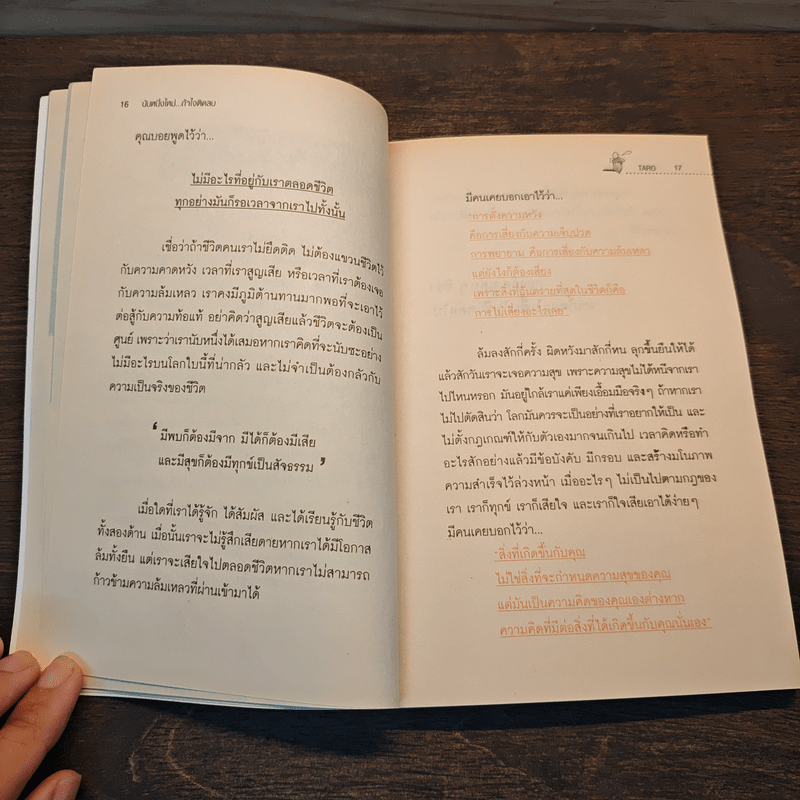 16 นับหนึ่งใหม่...ถ้าใจติดลบ
คุณบอยพูดไว้ว่า...
ไม่มีอะไรที่อยู่กับเราตลอดชีวิต
ทุกอย่างมันก็รอเวลาจากเราไปทั้งนั้น
เชื่อว่าถ้าชีวิตคนเราไม่ยึดติด ไม่ต้องแขวนชีวิตไว้
กับความคาดหวัง เวลาที่เราสูญเสีย หรือเวลาที่เราต้องเจอ
กับความล้มเหลว เราคงมีภูมิต้านทานมากพอที่จะเอาไว้
ต่อสู้กับความท้อแท้ อย่าคิดว่าสูญเสียแล้วชีวิตจะต้องเป็น
ศูนย์ เพราะว่าเรานับหนึ่งได้เสมอหากเราคิดที่จะนับซะอย่าง
ไม่มีอะไรบนโลกใบนี้ที่น่ากลัว และไม่จำเป็นต้องกลัวกับ
ความเป็นจริงของชีวิต
‘มีพบก็ต้องมีจาก มีได้ก็ต้องมีเสีย
และมีสุขก็ต้องมีทุกข์เป็นสัจธรรม’
เมื่อใดที่เราได้รู้จัก ได้สัมผัส และได้เรียนรู้กับชีวิต
ทั้งสองด้าน เมื่อนั้นเราจะไม่รู้สึกเสียดายหากเราได้มีโอกาส
ล้มทั้งยืน แต่เราจะเสียใจไปตลอดชีวิตหากเราไม่สามารถ
ก้าวข้ามความล้มเหลวที่ผ่านเข้ามาได้
TARO 17
มีคนเคยบอกเอาไว้ว่า...
"การตั้งความหวัง
คือการเสี่ยงกับความเจ็บปวด
การพยายาม คือการเสี่ยงกับความล้มเหลว
แต่ยังไงก็ต้องเสี่ยง
เพราะสิ่งที่อันตรายที่สุดในชีวิตก็คือ
การไม่เสี่ยงอะไรเลย"
ล้มลงสักกี่ครั้ง ผิดหวังมาสักกี่หน ลุกขึ้นยืนให้ได้
แล้วสักวันเราจะเจอความสุข เพราะความสุขไม่ได้หนีจากเรา
ไปไหนหรอก มันอยู่ใกล้เราแค่เพียงเอื้อมมือจริงๆ ถ้าหากเรา
ไม่ไปตัดสินว่า โลกมันควรจะเป็นอย่างที่เราอยากให้เป็น และ
ไม่ตั้งกฎเกณฑ์ให้กับตัวเองมากจนเกินไป เวลาคิดหรือทำ
อะไรสักอย่างแล้วมีข้อบังคับ มีกรอบ และสร้างมโนภาพ
ความสำเร็จไว้ล่วงหน้า เมื่ออะไรๆ ไม่เป็นไปตามกฎของ
เรา เราก็ทุกข์ เราก็เสียใจ และเราก็ใจเสียเอาได้ง่ายๆ
มีคนเคยบอกไว้ว่า...
"สิ่งที่เกิดขึ้นกับคุณ
ไม่ใช่สิ่งที่จะกำหนดความสุขของคุณ
แต่มันเป็นความคิดของคุณเองต่างหาก
ความคิดที่มีต่อสิ่งที่ได้เกิดขึ้นกับคุณนั่นเอง"